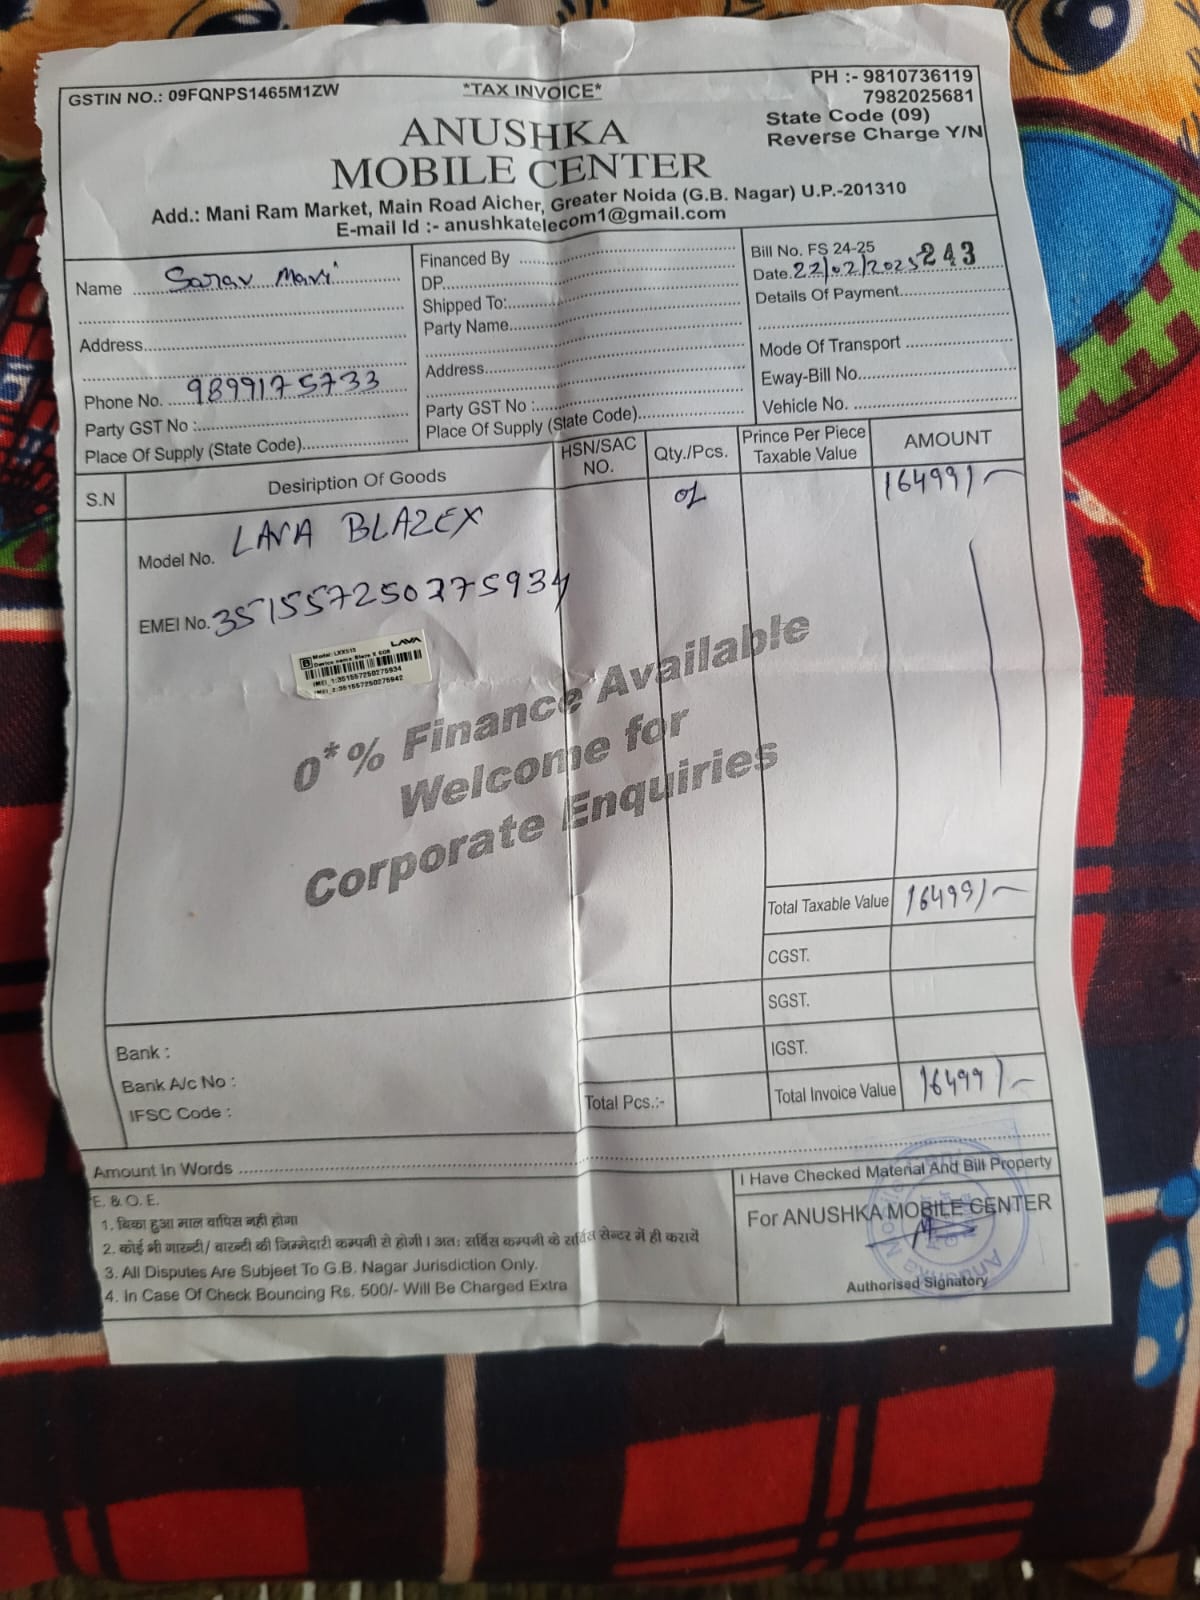 GSTIN NO.: 09FQNPS1465M1ZW
*TAX INVOICE*
PH :- 9810736119
7982025681
State Code (09)
Reverse Charge Y/N
ANUSHKA
MOBILE CENTER
Add.: Mani Ram Market, Main Road Aicher, Greater Noida (G.B. Nagar) U.P.-201310
E-mail Id :- anushkatelecom1@gmail.com
Name Sarav Mavi
Address
Phone No. 9899175733
Party GST No :
Place Of Supply (State Code)
Financed By
DP
Shipped To:
Party Name
Address
Party GST No :
Place Of Supply (State Code)
Bill No. FS 24-25 243
Date. 22/02/2025
Details Of Payment
Mode Of Transport
Eway-Bill No
Vehicle No.
S.N Desiription Of Goods HSN/SAC NO. Qty./Pcs. Prince Per Piece Taxable Value AMOUNT
01 16499/-
Model No. LAVA BLAZEX
EMEI No. 351557250275934
LAVA
Model: LXX513
Device name: Blaze X 6GB
IMEI_1:351557250275934
IMEI_2:351557250275942
0*% Finance Available
Welcome for
Corporate Enquiries
Total Taxable Value 16499/-
CGST.
SGST.
IGST.
Bank :
Bank A/c No :
IFSC Code :
Total Pcs.:-
Total Invoice Value 16499/-
Amount In Words
E. & O. E.
1. बिका हुआ माल वापिस नही होगा
2. कोई भी गारन्टी/ वारन्टी की जिम्मेदारी कम्पनी से होगी । अतः सर्विस कम्पनी के सर्विस सेन्टर में ही करायें
3. All Disputes Are Subjeet To G.B. Nagar Jurisdiction Only.
4. In Case Of Check Bouncing Rs. 500/- Will Be Charged Extra
I Have Checked Material And Bill Property
For ANUSHKA MOBILE CENTER
Authorised Signatory